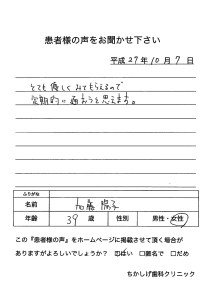 患者様の声をお聞かせ下さい
平成 27年 10月 7日
とても優しくみてもらえるので
定期的に通おうと思えます。
ふりがな
名前 加藤 陽子
年齢 39 歳 性別 男性・女性
この『患者様の声』をホームページに掲載させて頂く場合が
ありますがよろしいでしょうか？ ☑はい □匿名で □だめ
ちかしげ歯科クリニック